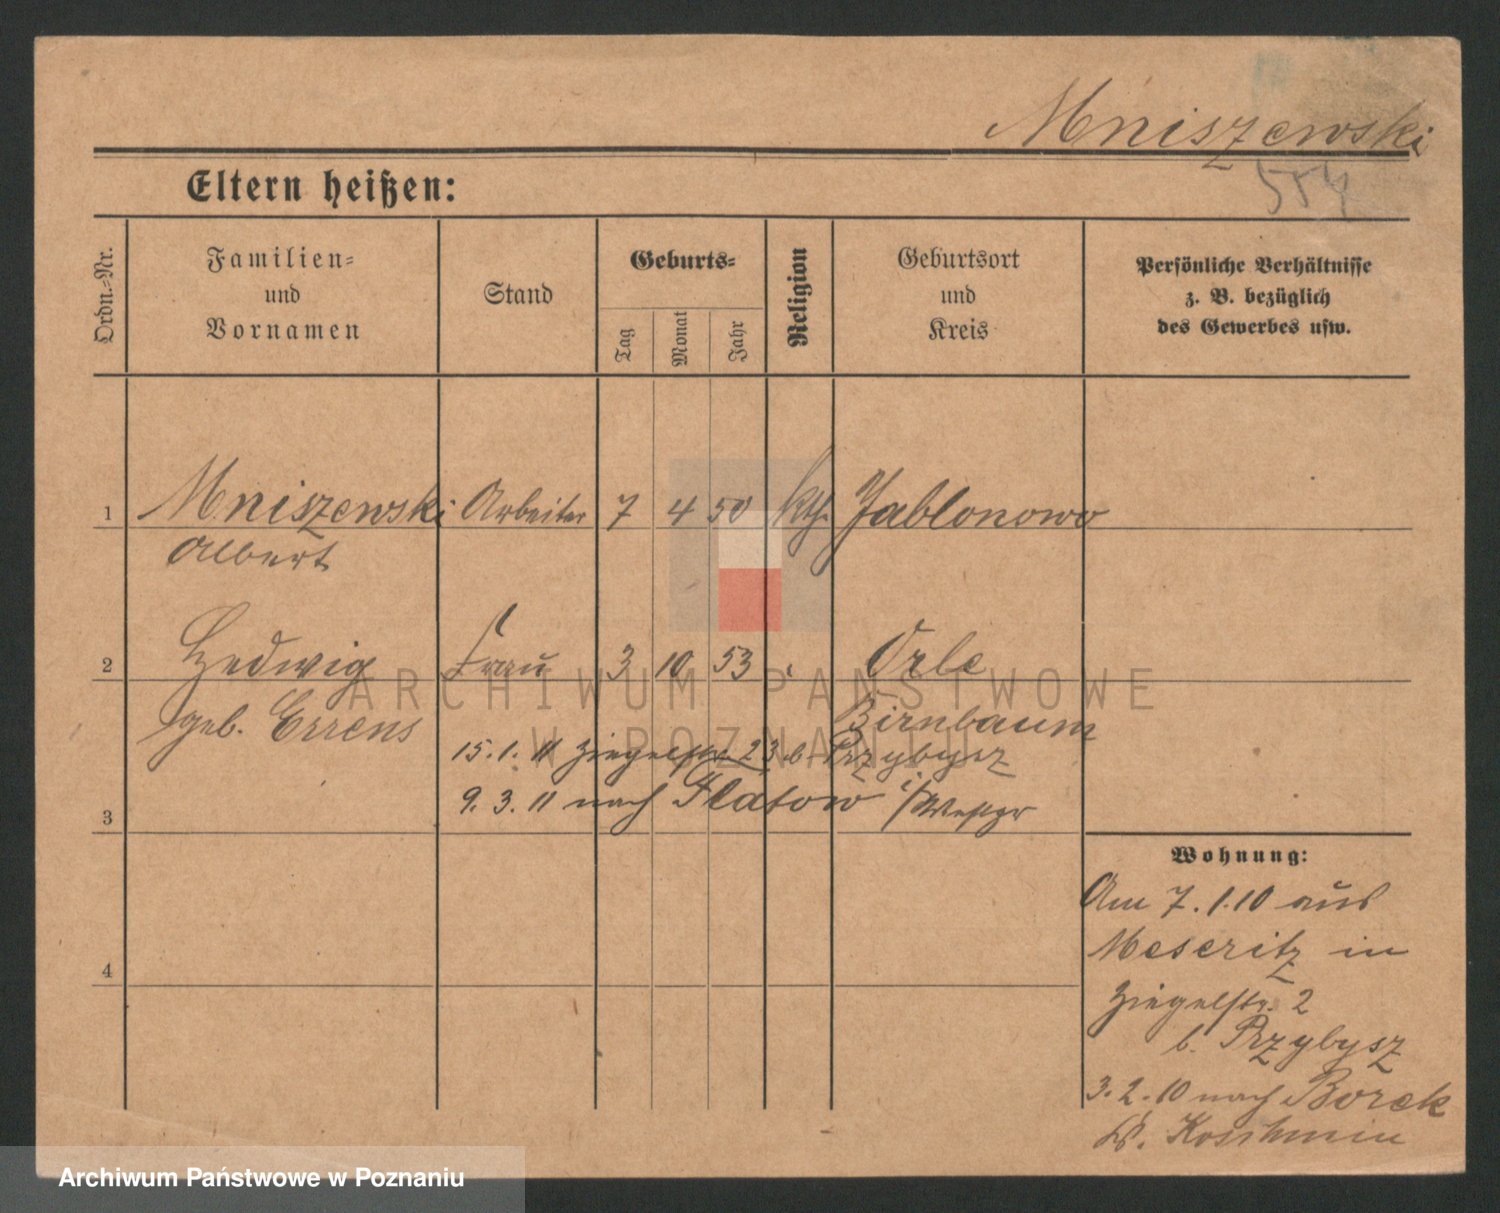 Mniszewski
554
Eltern heißen:
Ordn.=Nr.
Familien=
und
Vornamen
Stand
Geburts=
Tag
Monat
Jahr
Religion
Geburtsort
und
Kreis
Persönliche Verhältnisse
z. B. bezüglich
des Gewerbes usw.
1 Mniszewski Arbeiter 7 4 50 kth. Jablonowo
Albert
2 Hedwig Frau 3 10 53 Orle
geb. Errens Birnbaum
15. 1. 11 Ziegelstr. 23 b. Przybysz
9. 3. 11 nach Flatow i/Westpr
3
Wohnung:
Am 7. 1. 10 aus
Meseritz in
4
Ziegelstr. 2
b. Przybysz
3. 2. 10 nach Borek
Kr. Koschmin
ARCHIWUM PAŃSTWOWE
W POZNANIU
Archiwum Państwowe w Poznaniu